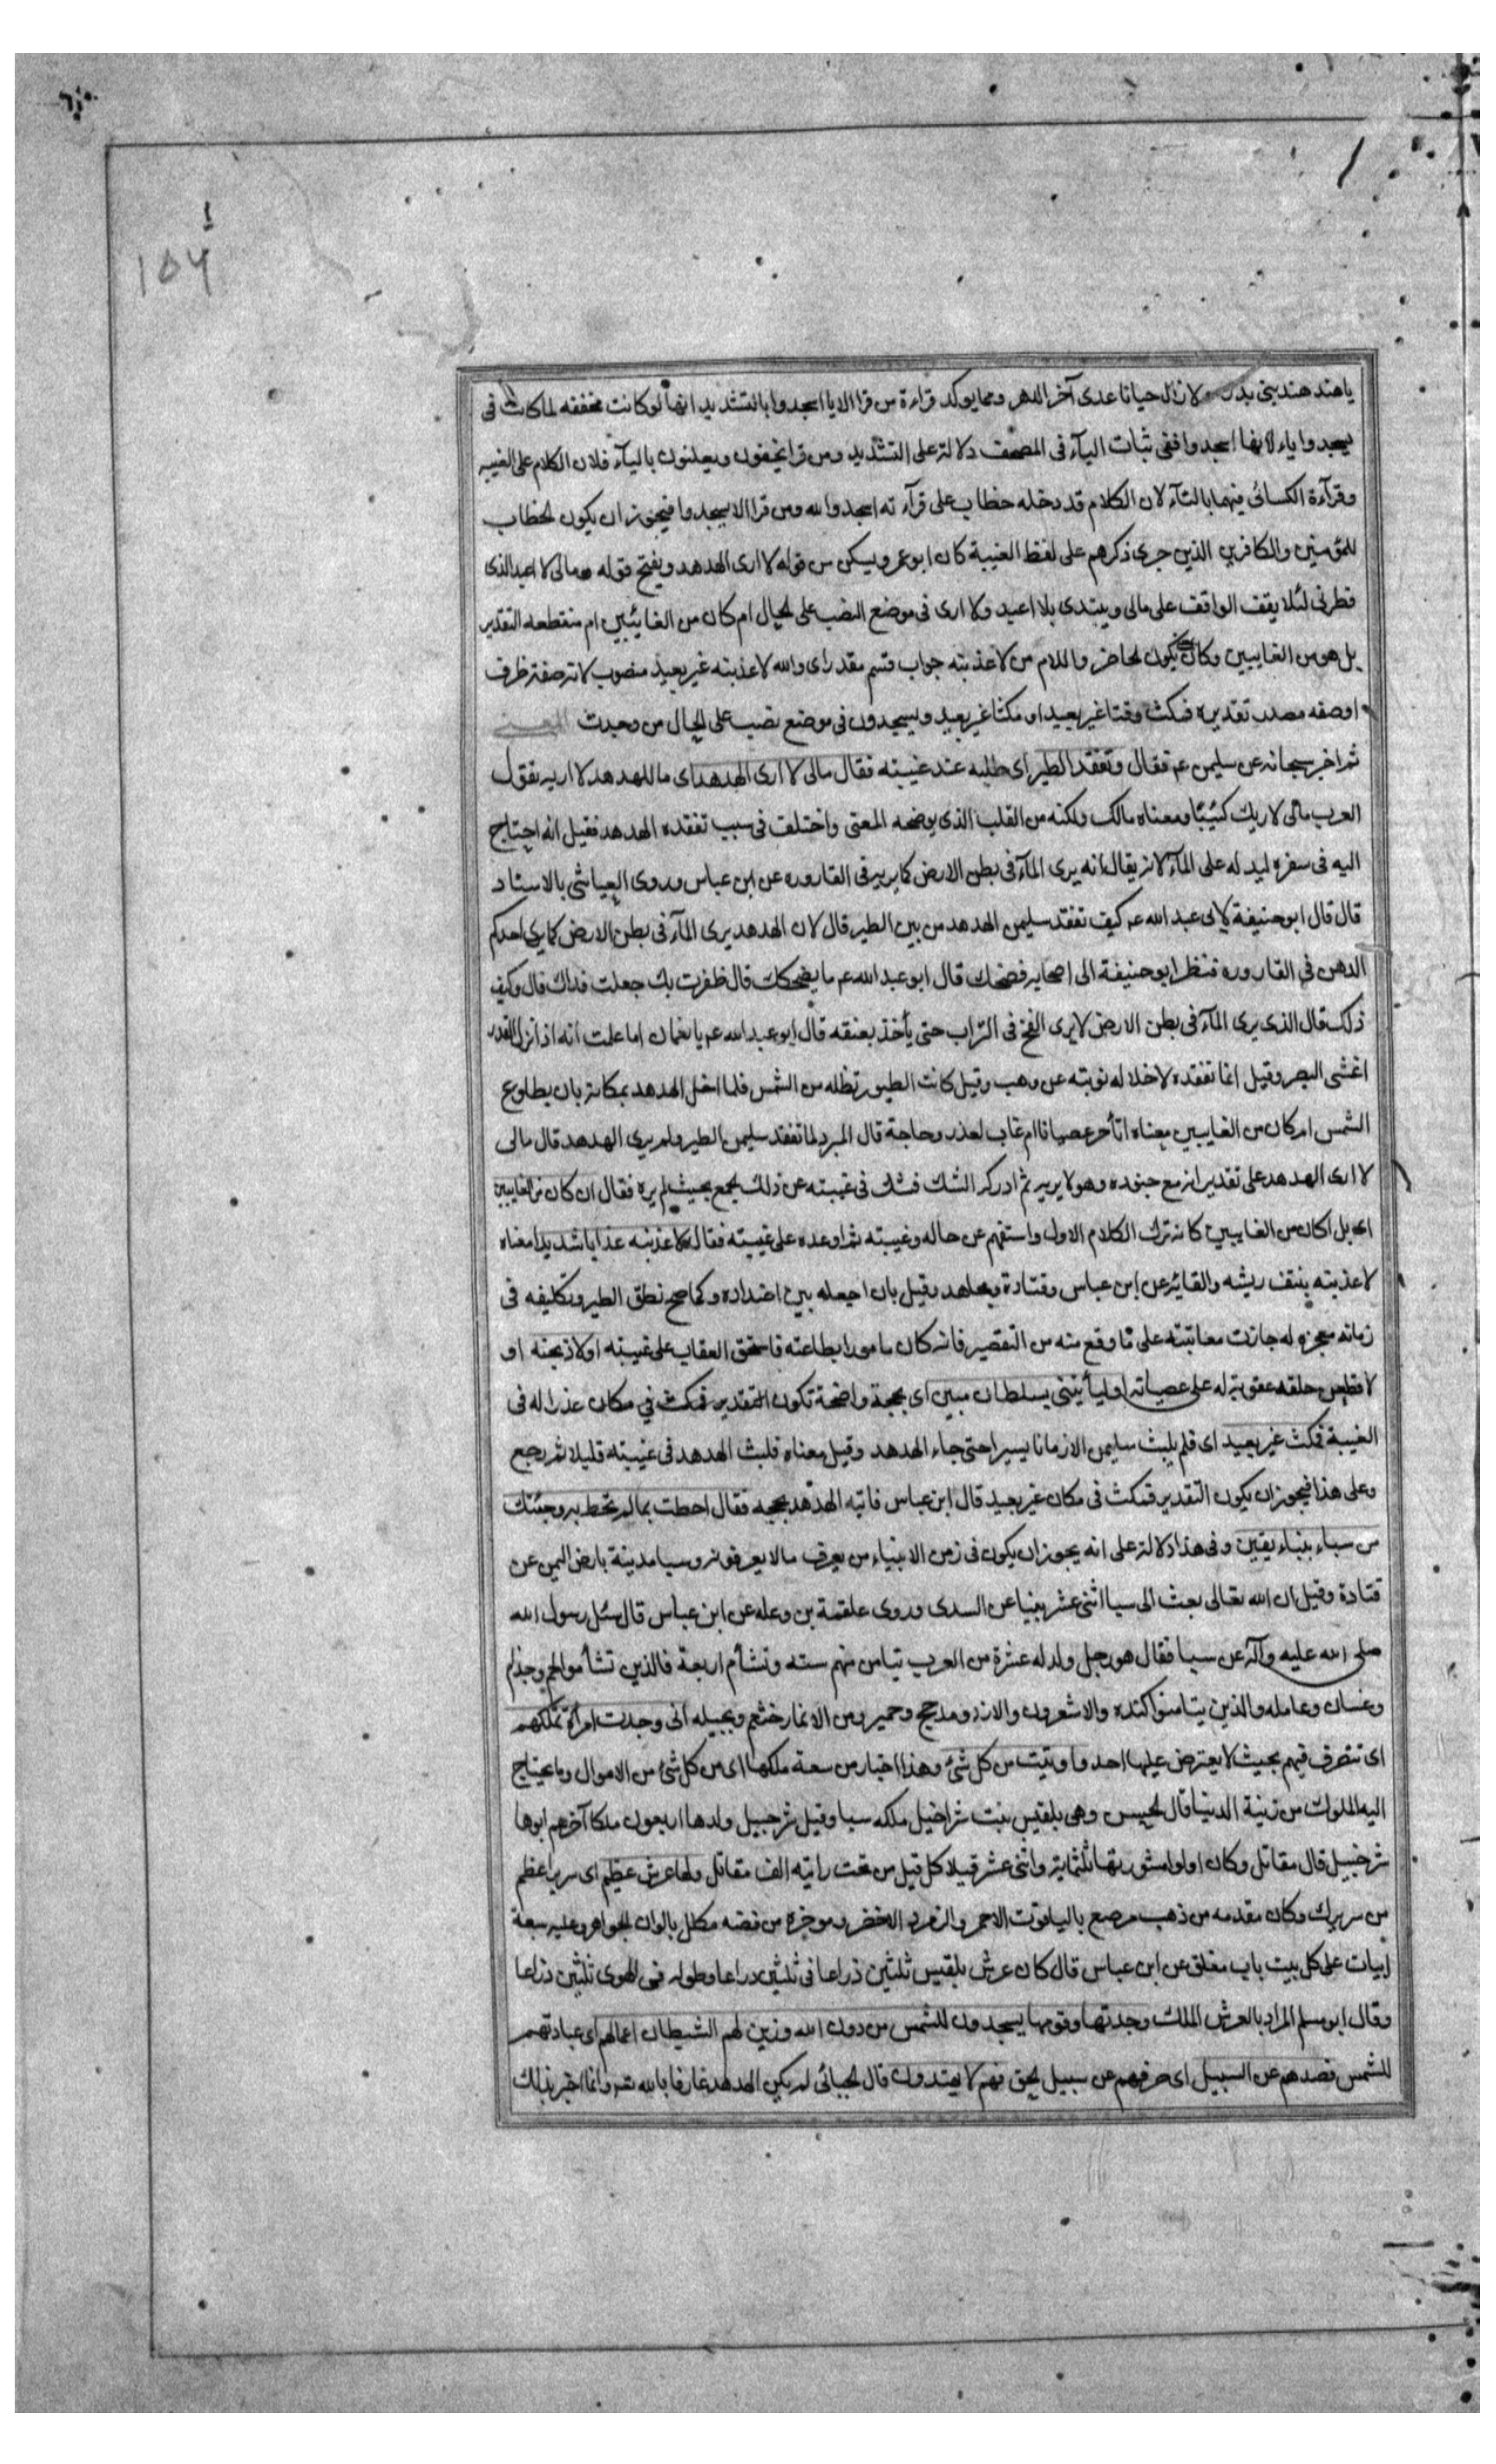 ١٥٦
يا هند هند بنى بدر لا زال حيانا عدى آخر الدهر ومما يوكد قراءة من قرا الا يا اسجدوا بالتشديد انها لو كانت مخففه لما كانت فى
يسجدوا ياء لانها اسجدوا ففى ثبات اليآء فى المصحف دلالة على التشديد ومن قرا يخفون ويعلنون باليآء فلان الكلام على الغيبه
وقرآءة الكسائى فيهما بالتآء لان الكلام قد دخله خطاب على قرآءته اسجدوا لله ومن قرا الا يسجدوا فيجوز ان يكون الخطاب
للمؤمنين والكافرين الذين جرى ذكرهم على لفظ الغيبة كان ابو عمرو يسكن من قوله لا ارى الهدهد ويفتح قوله ومالى لا اعبد الذى
فطرنى لئلا يقف الواقف على مالى ويبتدى بلا اعبد ولا ارى فى موضع النصب على الحال ام كان من الغائبين ام منقطعه التقدير
بل هو من الغايبين وكان يكون لحاضر واللام من لاعذبنه جواب قسم مقدر اى والله لاعذبنه غير بعيد منصوب لانه صفة ظرف
او صفه مصدر تقديره فمكث وقتا غير بعيد او مكثا غير بعيد ويسجدون فى موضع نصب على الحال من وجدت المعنى
ثم اخبر سبحانه عن سليمن عم فقال وتفقد الطير اى طلبه عند غيبته فقال مالى لا ارى الهدهد اى ما للهدهد لا اريه تقول
العرب مالى لا اريك كئيبا ومعناه مالك ولكنه من القلب الذى يوضحه المعنى واختلف فى سبب تفقده الهدهد فقيل انه احتاج
اليه فى سفره ليدله على المآء لانه يقال انه يرى المآء فى بطن الارض كما يريه فى القاروره عن ابن عباس وروى العياشى بالاسناد
قال قال ابو حنيفة لابى عبد الله عم كيف تفقد سليمن الهدهد من بين الطير قال لان الهدهد يرى المآء فى بطن الارض كما يرى احدكم
الدهن فى القاروره فنظر ابو حنيفة الى اصحابه فضحك قال ابو عبد الله عم ما يضحكك قال ظفرت بك جعلت فداك قال وكيف
ذلك قال الذى يرى المآء فى بطن الارض لا يرى الفخ فى التراب حتى يأخذ بعنقه قال ابو عبد الله عم يا نعمان اما علمت انه اذا نزل القدر
اغشى البصر وقيل انما تفقده لاخلاله نوبته عن وهب وقيل كانت الطيور تظله من الشمس فلما اخل الهدهد بمكانه بان بطلوع
الشمس ام كان من الغايبين معناه اتأخر عصيانا ام غاب لعذر وحاجة قال المبرد لما تفقد سليمن الطير ولم يرى الهدهد قال مالى
لا ارى الهدهد على تقدير انه مع جنوده وهو لا يريه ثم ادركه الشك فشك فى غيبته عن ذلك الجمع بحيث لم يره فقال ان كان من الغايبين
اى بل اكان من الغايبين كانه ترك الكلام الاول واستفهم عن حاله وغيبته ثم اوعده على غيبته فقال لاعذبنه عذابا شديدا معناه
لاعذبنه بنتف ريشه والقائه عن ابن عباس وقتادة ومجاهد وقيل بان اجعله بين اضداده وكما صح نطق الطير وتكليفه فى
زمانه معجزه له جازت معاتبته على ما وقع منه من التقصير فانه كان مامورا بطاعته فاستحق العقاب على غيبته اولاذبحنه او
لاقطعن حلقه عقوبة له على عصيانه او ليأتينى بسلطان مبين اى بحجة واضحة تكون التقدير فمكث فى مكان عذرا له فى
الغيبة فمكث غير بعيد اى فلم يلبث سليمن الا زمانا يسيرا حتى جاء الهدهد وقيل معناه فلبث الهدهد فى غيبته قليلا ثم رجع
وعلى هذا فيجوز ان يكون التقدير فمكث فى مكان غير بعيد قال ابن عباس فاتيه الهدهد بحجه فقال احطت بما لم تحط به وجئتك
من سباء بنباء يقين وفى هذا دلالة على انه يجوز ان يكون فى زمن الانبياء من يعرف ما لا يعرفونه وسبا مدينة بارض اليمن عن
قتادة وقيل ان الله تعالى بعث الى سبا اثنى عشر نبيا عن السدى وروى علقمة بن وعله عن ابن عباس قال سئل رسول الله
صلى الله عليه وآله عن سبا فقال هو رجل ولد له عشرة من العرب تيامن منهم سته وتشأم اربعة فالذين تشأموا لخم وجذام
وغسان وعامله والذين تيامنوا كنده والاشعرون والازد ومذحج وحمير ومن الانمار خثعم وبجيله انى وجدت امرأة تملكهم
اى تتصرف فيهم بحيث لا يعترض عليها احد واوتيت من كل شئ وهذا اخبار من سعة ملكها اى من كل شئ من الاموال وما يحتاج
اليه الملوك من زينة الدنيا قال الحسن وهى بلقيس بنت شراحيل ملكه سبا وقيل شرحبيل ولدها اربعون ملكا آخرهم ابوها
شرحبيل قال مقاتل وكان اولوا مشورتها ثلثماية واثنى عشر قيلا كل قيل من تحت رايته الف مقاتل ولها عرش عظيم اى سرير اعظم
من سريرك وكان مقدمه من ذهب مرصع بالياقوت الاحمر والزمرد الاخضر وموخره من فضه مكلل بالوان الجواهر وعليه سبعة
ابيات على كل بيت باب مغلق عن ابن عباس قال كان عرش بلقيس ثلثين ذراعا فى ثلثين ذراعا وطوله فى الهوى ثلثين ذراعا
وقال ابو مسلم المراد بالعرش الملك وجدتها وقومها يسجدون للشمس من دون الله وزين لهم الشيطان اعمالهم اى عبادتهم
للشمس فصدهم عن السبيل اى صرفهم عن سبيل الحق فهم لا يهتدون قال الجبائى لم يكن الهدهد عارفا بالله تعم وانما اخبر بذلك